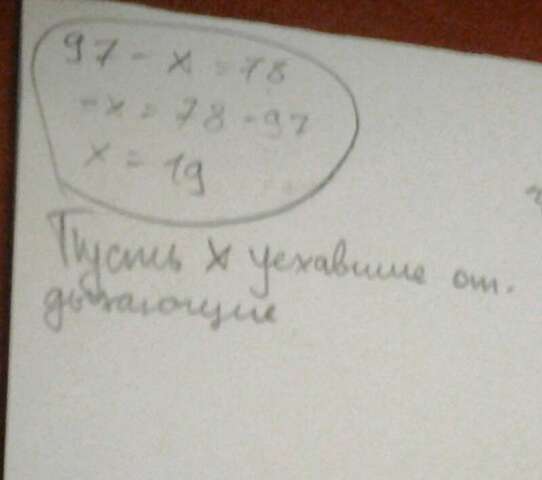 97 - x = 78
-x = 78 - 97
x = 19
Пусть x уехавшие от-
дыхающие